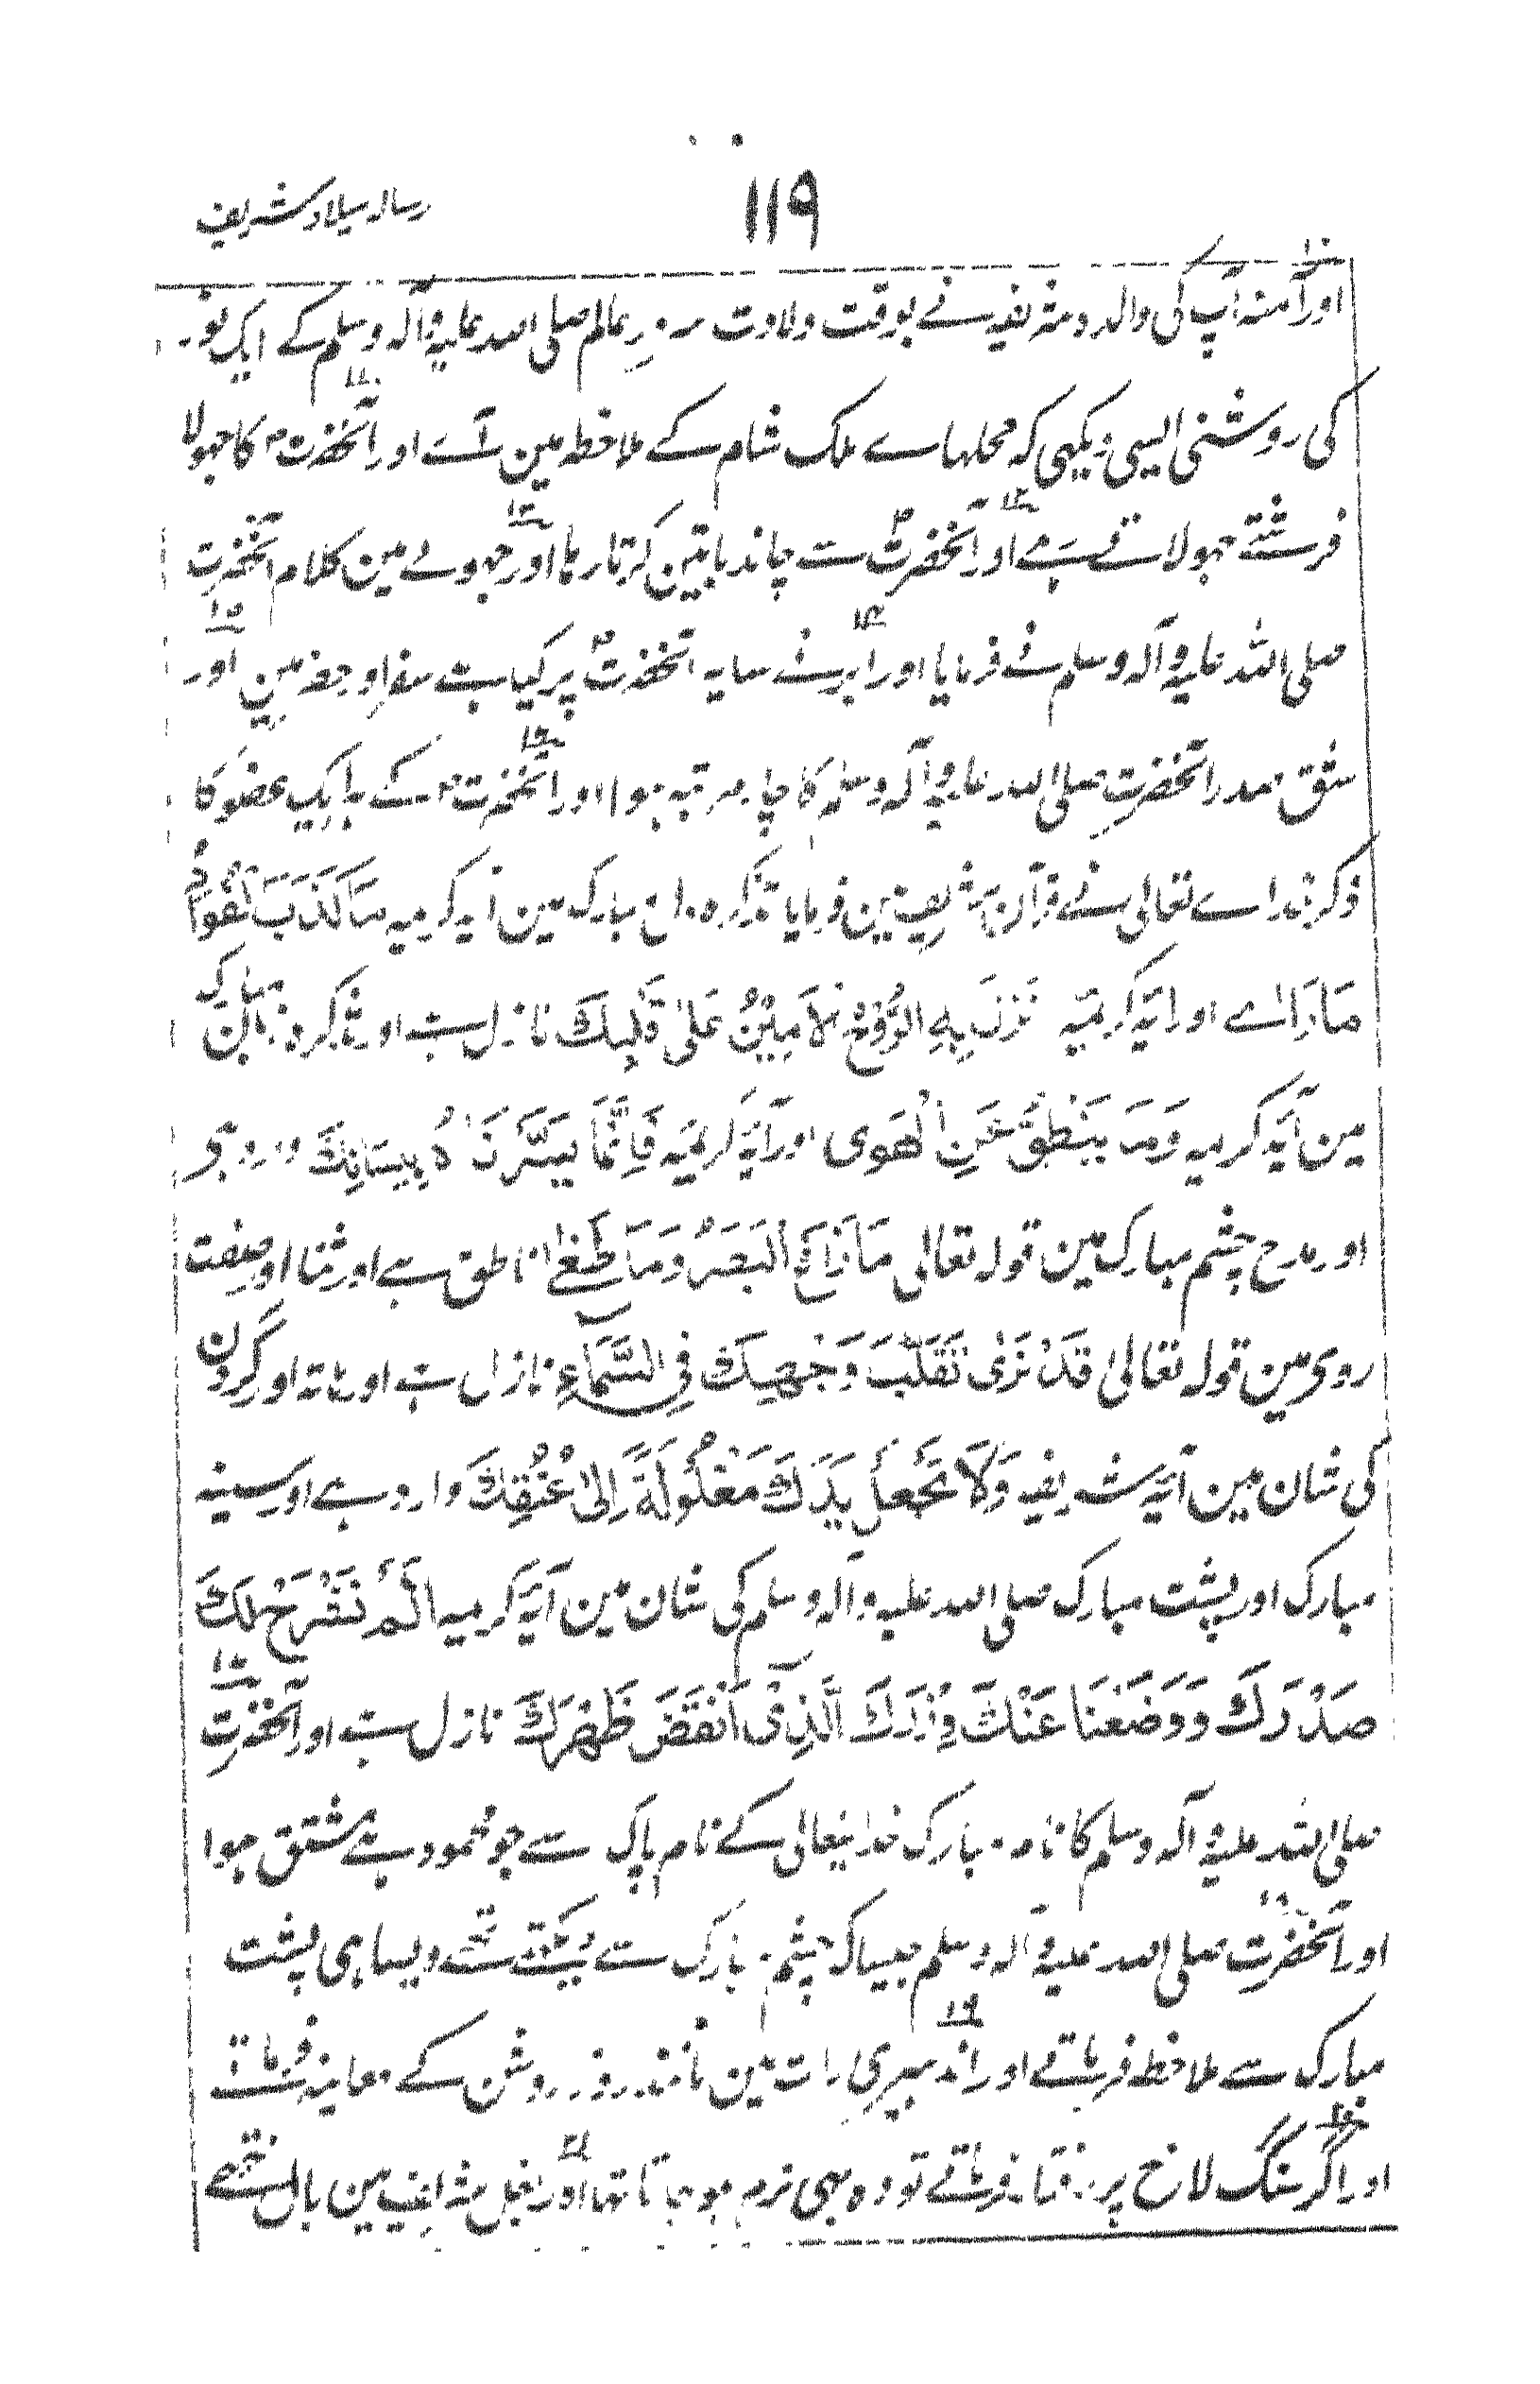 ۱۱۹
رسالہ میلاد شریف
اور آمنہ آپ کی والدہ شریفہ نے بوقت ولادت سرور عالم صلی اللہ علیہ وآلہ وسلم کے ایک نور
کی روشنی ایسی دیکھی کہ محلہاے ملک شام کے ملاحظہ مین آے اور آنحضرت ۱۲ کا جہولا
فرشتے جہولاتے تہے ۱۳ اور آنحضرتؐ سے چاند باتین کرتا رہا ۱۳ اور جہولے مین کلام آنحضرت
صلی اللہ علیہ وآلہ وسلم نے فرمایا ۱۴ اور ابر نے سایہ آنحضرتؐ پر کیا ہے سفر اور حضر مین ۱۵ اور
شق صدر آنحضرت صلی اللہ علیہ وآلہ وسلم کا چار مرتبہ ہوا ۱۶ اور آنحضرت کے ہر ایک عضو کا
ذکر خداے تعالی نے قرآن شریف مین فرمایا تذکرہ دل مبارک مین آیہ کریمیہ مَا كَذَبَ الْفُؤَادُ
مَا رَاٰے اور آیۃ کریمیہ نَزَلَ بِهِ الرُّوحُ الْاَمِيْنُ عَلیٰ قَلْبِكَ نازل ہے اور تذکرہ زبان مبارک
مین آیۃ کریمیہ وَمَا يَنْطِقُ عَنِ الْهَوٰی اور آیۃ کریمیہ فَاِنَّمَا يَسَّرْنَاهُ بِلِسَانِكَ وارد ہی
اور مدح چشم مبارک مین قولہ تعالی مَا زَاغَ الْبَصَرُ وَمَا طَغٰی ناطق ہے اور ثنا اور صفت
روی مین قولہ تعالیٰ قَدْ نَرٰی تَقَلُّبَ وَجْهِكَ فِي السَّمَاءِ نازل ہے اور ہاتہ اور گردن
کی شان مین آیۃ شریفہ وَلَا تَجْعَلْ يَدَكَ مَغْلُوْلَةً اِلٰی عُنُقِكَ وارد ہے اور سینہ
مبارک اور پشت مبارک صلی اللہ علیہ وآلہ وسلم کی شان مین آیۃ کریمیہ اَلَمْ نَشْرَحْ لَكَ
صَدْرَكَ وَوَضَعْنَا عَنْكَ وِزْرَكَ الَّذِیْ اَنْقَضَ ظَهْرَكَ نازل ہے ۱۷ اور آنحضرت
صلی اللہ علیہ وآلہ وسلم کا نام مبارک خدایتعالی کے نام پاک سے جو محمود ہے مشتق ہوا
۱۸ اور آنحضرت صلی اللہ علیہ وآلہ وسلم جیسا کہ چشم مبارک سے دیکہتے تہے ویسا ہی پشت
مبارک سے ملاحظہ فرماتے ۱۹ اور اندہیری رات مین مانند روز روشن کے معاینہ فرماتے
۲۰ اور اگر سنگ لاخ پر رفتار فرماتے تو وہ بہی نرم ہو جاتا تہا ۲۱ اور بغل شریف مین بال نتہے